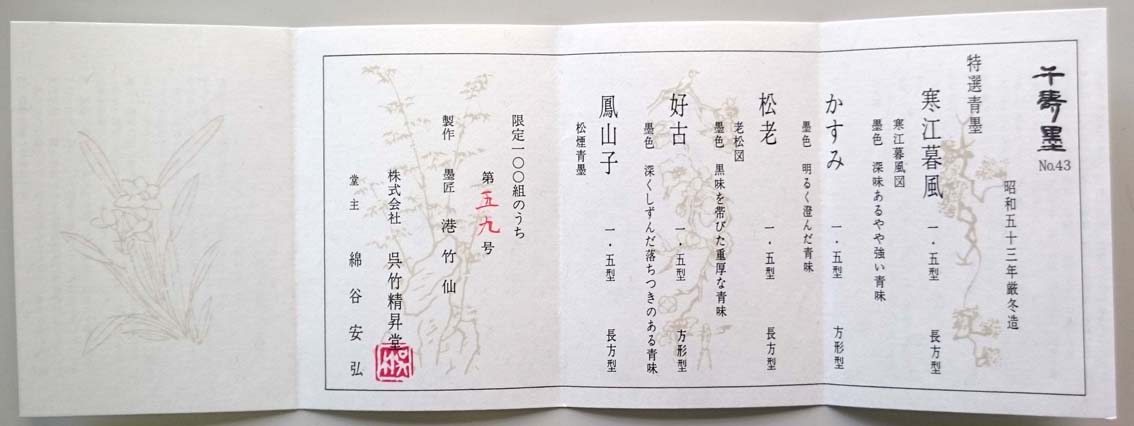 千寿墨
No.43
昭和五十三年厳冬造
特選青墨
寒江暮風 一・五型 長方型
寒江暮風図
墨色 深味あるやや強い青味
かすみ 一・五型 方形型
墨色 明るく澄んだ青味
松老 一・五型 長方型
老松図
墨色 黒味を帯びた重厚な青味
好古 一・五型 方形型
墨色 深くしずんだ落ちつきのある青味
鳳山子 一・五型 長方型
松煙青墨
限定一〇〇組のうち
第五九号
製作 墨匠 港竹仙
株式会社 呉竹精昇堂
堂主 綿谷安弘